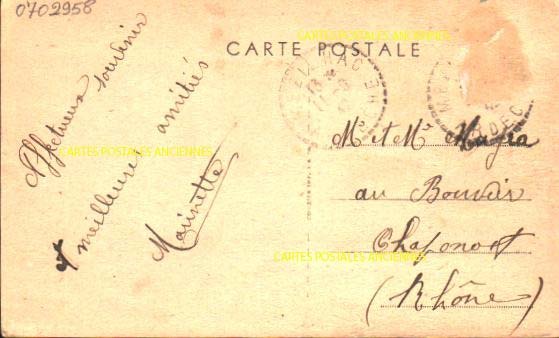 0702958
CARTES POSTALES ANCIENNES
CARTE POSTALE
Affectueux souvenir
et meilleures amitiés
Marinette
CARTES POSTALES ANCIENNES
Mr et Mme
au Bouvier
Chaponost
(Rhône)
CARTES POSTALES ANCIENNES